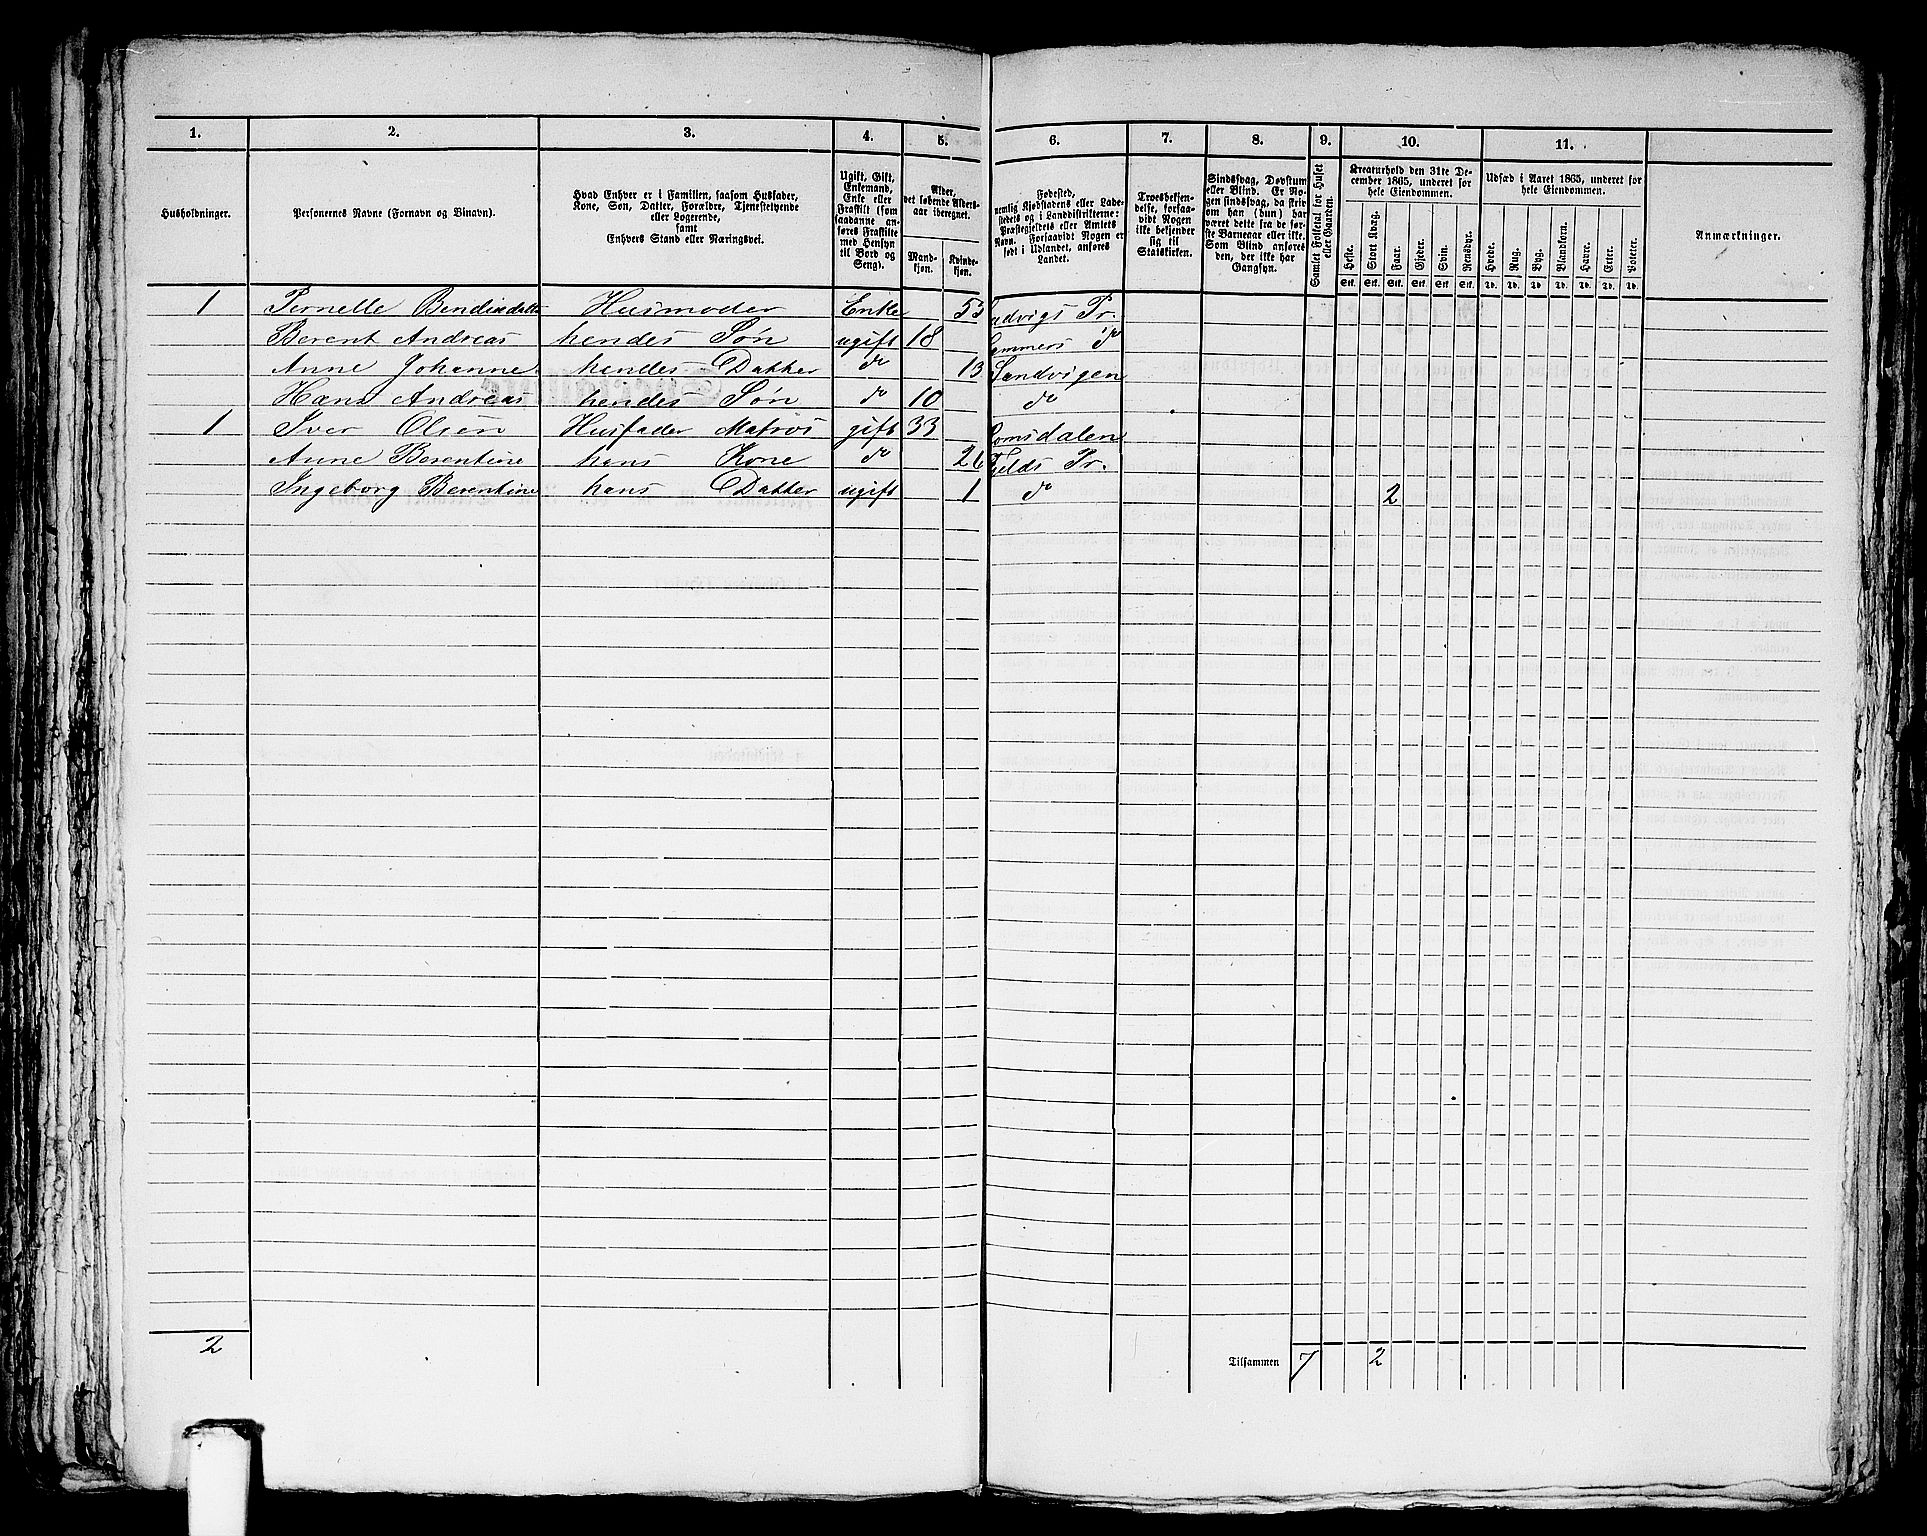 1. 2. 3. 4. 5. 6. 7. 8. 9. 10. 11.
Husholdninger.
Personernes Navne (Fornavn og Binavn).
Hvad Enhver er i Familien, saasom Husfader,
Kone, Søn, Datter, Forældre, Tjenestetyende
eller Logerende,
samt
Enhvers Stand eller Næringsvei.
Ugift, Gift,
Enkemand,
Enke eller
Fraskilt (som
saadanne an-
føres Fraskilte
med Hensyn
til Bord og
Seng).
Alder,
det løbende Alders-
aar iberegnet.
Mand-
kjøn.
Kvinde-
kjøn.
Fødested,
nemlig Kjøbstadens eller Lade-
stedets og i Landdistrikterne:
Præstegjeldets eller Amtets
Navn. Forsaavidt Nogen er
født i Udlandet, anføres
Landet.
Troesbekjen-
delse, forsaa-
vidt Nogen
ikke bekjender
sig til
Statskirken.
Sindssvag, Døvstum
eller Blind. Er No-
gen sindssvag, da skri-
ves om han (hun) har
været dette fra de før-
ste Barneaar eller ikke.
Som Blind anføres
den, der ikke har
Gangsyn.
Samlet Folketal for Huset
eller Gaarden.
Kreaturhold den 31te De-
cember 1865, underet for
hele Eiendommen.
Heste. Stort Kvæg. Faar. Gjeder. Svin. Rensdyr.
Stk. Stk. Stk. Stk. Stk. Stk.
Udsæd i Aaret 1865, underet for
hele Eiendommen.
Hvede. Rug. Byg. Blandkorn. Havre. Erter. Poteter.
Td. Td. Td. Td. Td. Td. Td.
Anmærkninger.
1 Pernelle Bendixdatter Husmoder Enke 53 Ladvigs Pr.
Berent Andreas hendes Søn ugift 18 Hammers do
Anne Johanne hendes Datter do 13 Sandvigen
Hans Andreas hendes Søn do 10 do
1 Iver Olsen Husfader Matros gift 33 Romsdalen
Anne Berentine hans Kone do 26 Fjelds Pr.
Ingeborg Berentine hans Datter ugift 1 do 2
2 Tilsammen 7 2